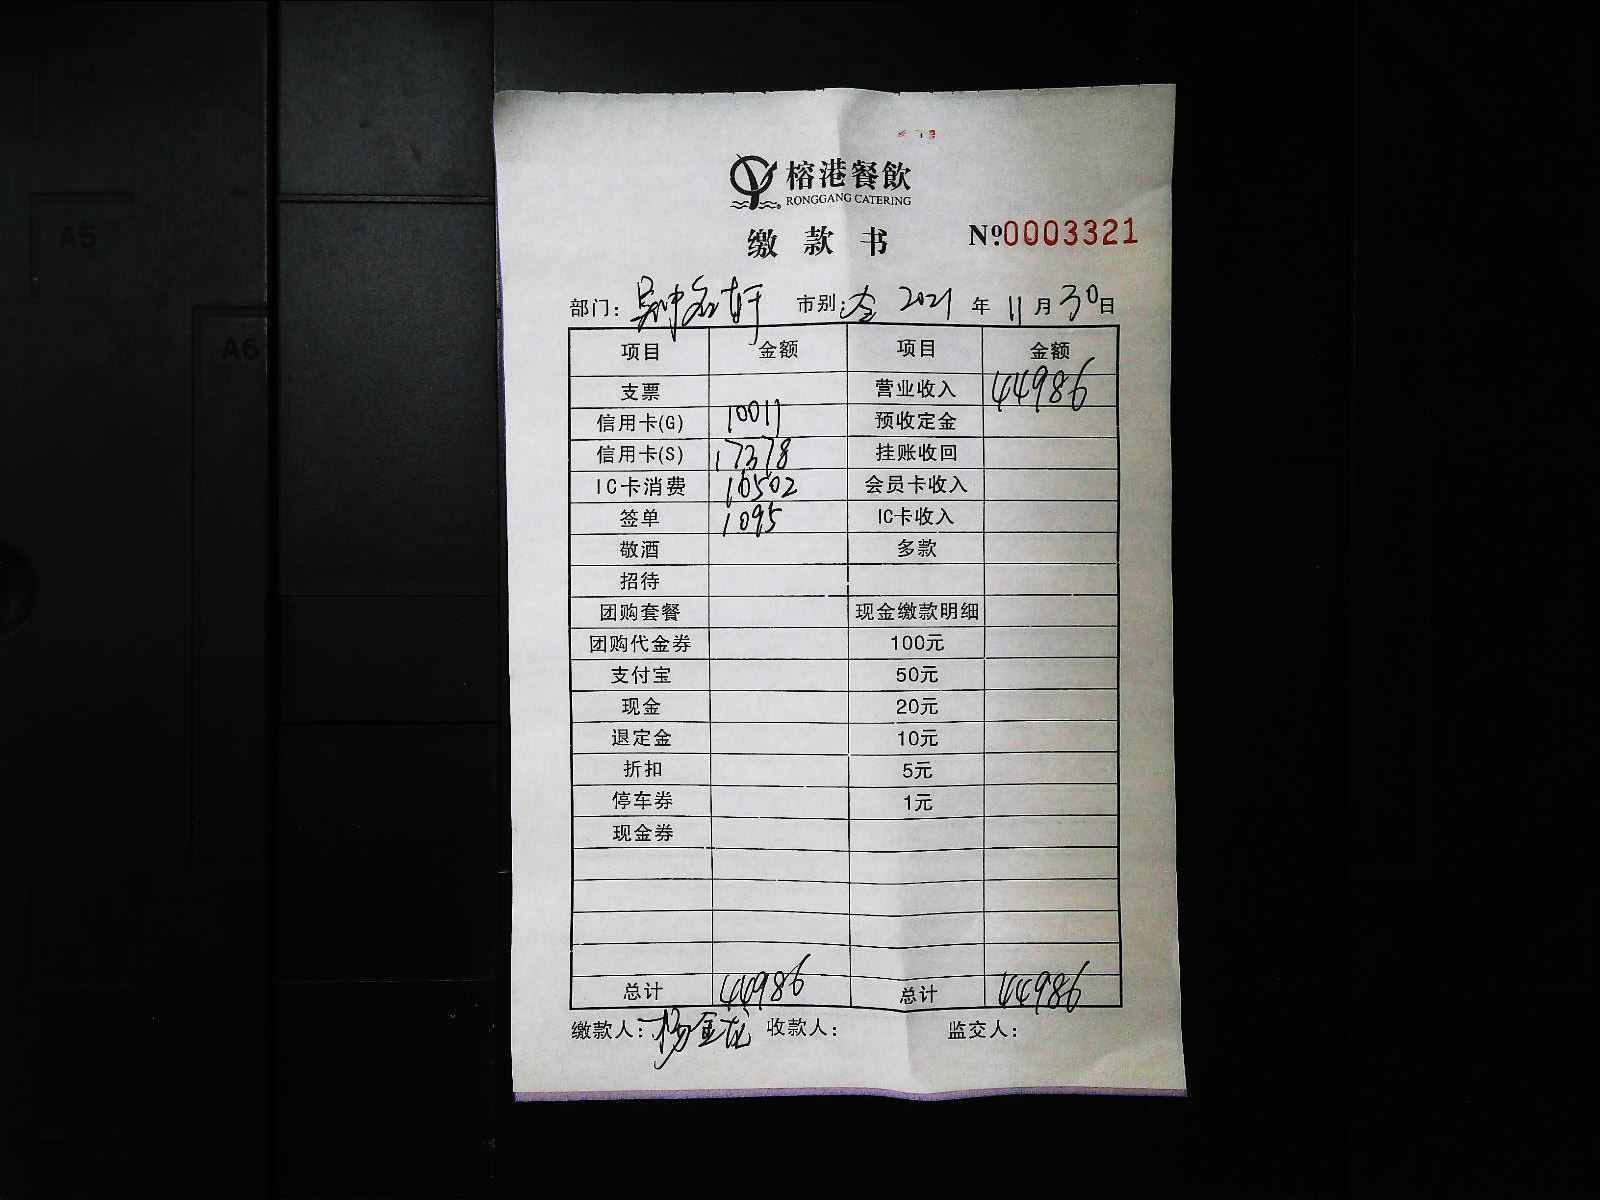 A4
A5
A6
榕港餐飲
RONGGANG CATERING
缴款书 №0003321
部门： 市别：全 2021年11月30日
项目 金额 项目 金额
支票 营业收入 44986
信用卡(G) 10011 预收定金
信用卡(S) 17378 挂账收回
IC卡消费 16502 会员卡收入
签单 1095 IC卡收入
敬酒 多款
招待
团购套餐 现金缴款明细
团购代金券 100元
支付宝 50元
现金 20元
退定金 10元
折扣 5元
停车券 1元
现金券
总计 44986 总计 44986
缴款人：杨金龙 收款人： 监交人：